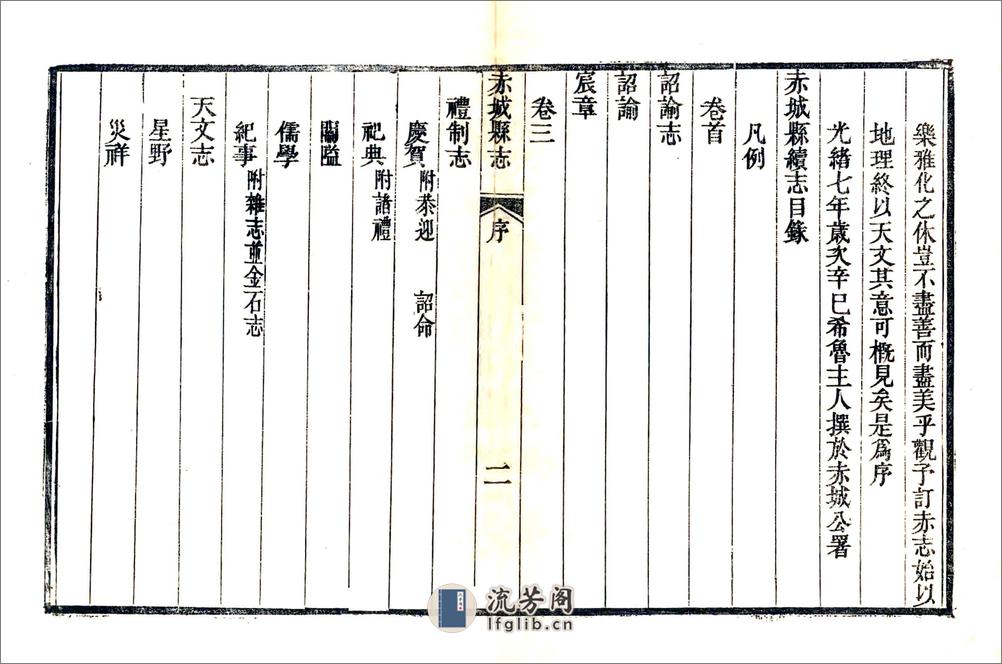 樂雅化之休豈不盡善而盡美乎觀予訂赤志始以
地理終以天文其意可槪見矣是爲序
光緖七年歲次辛巳希魯主人撰於赤城公署
赤城縣續志目錄
凡例
卷首
詔諭志
詔諭
宸章
卷三
赤城縣志 序 二
禮制志
慶賀 附恭迎 詔命
祀典 附諸禮
關隘
儒學
紀事 附雜志並金石志
天文志
星野
災祥
流芳阁
lfglib.cn